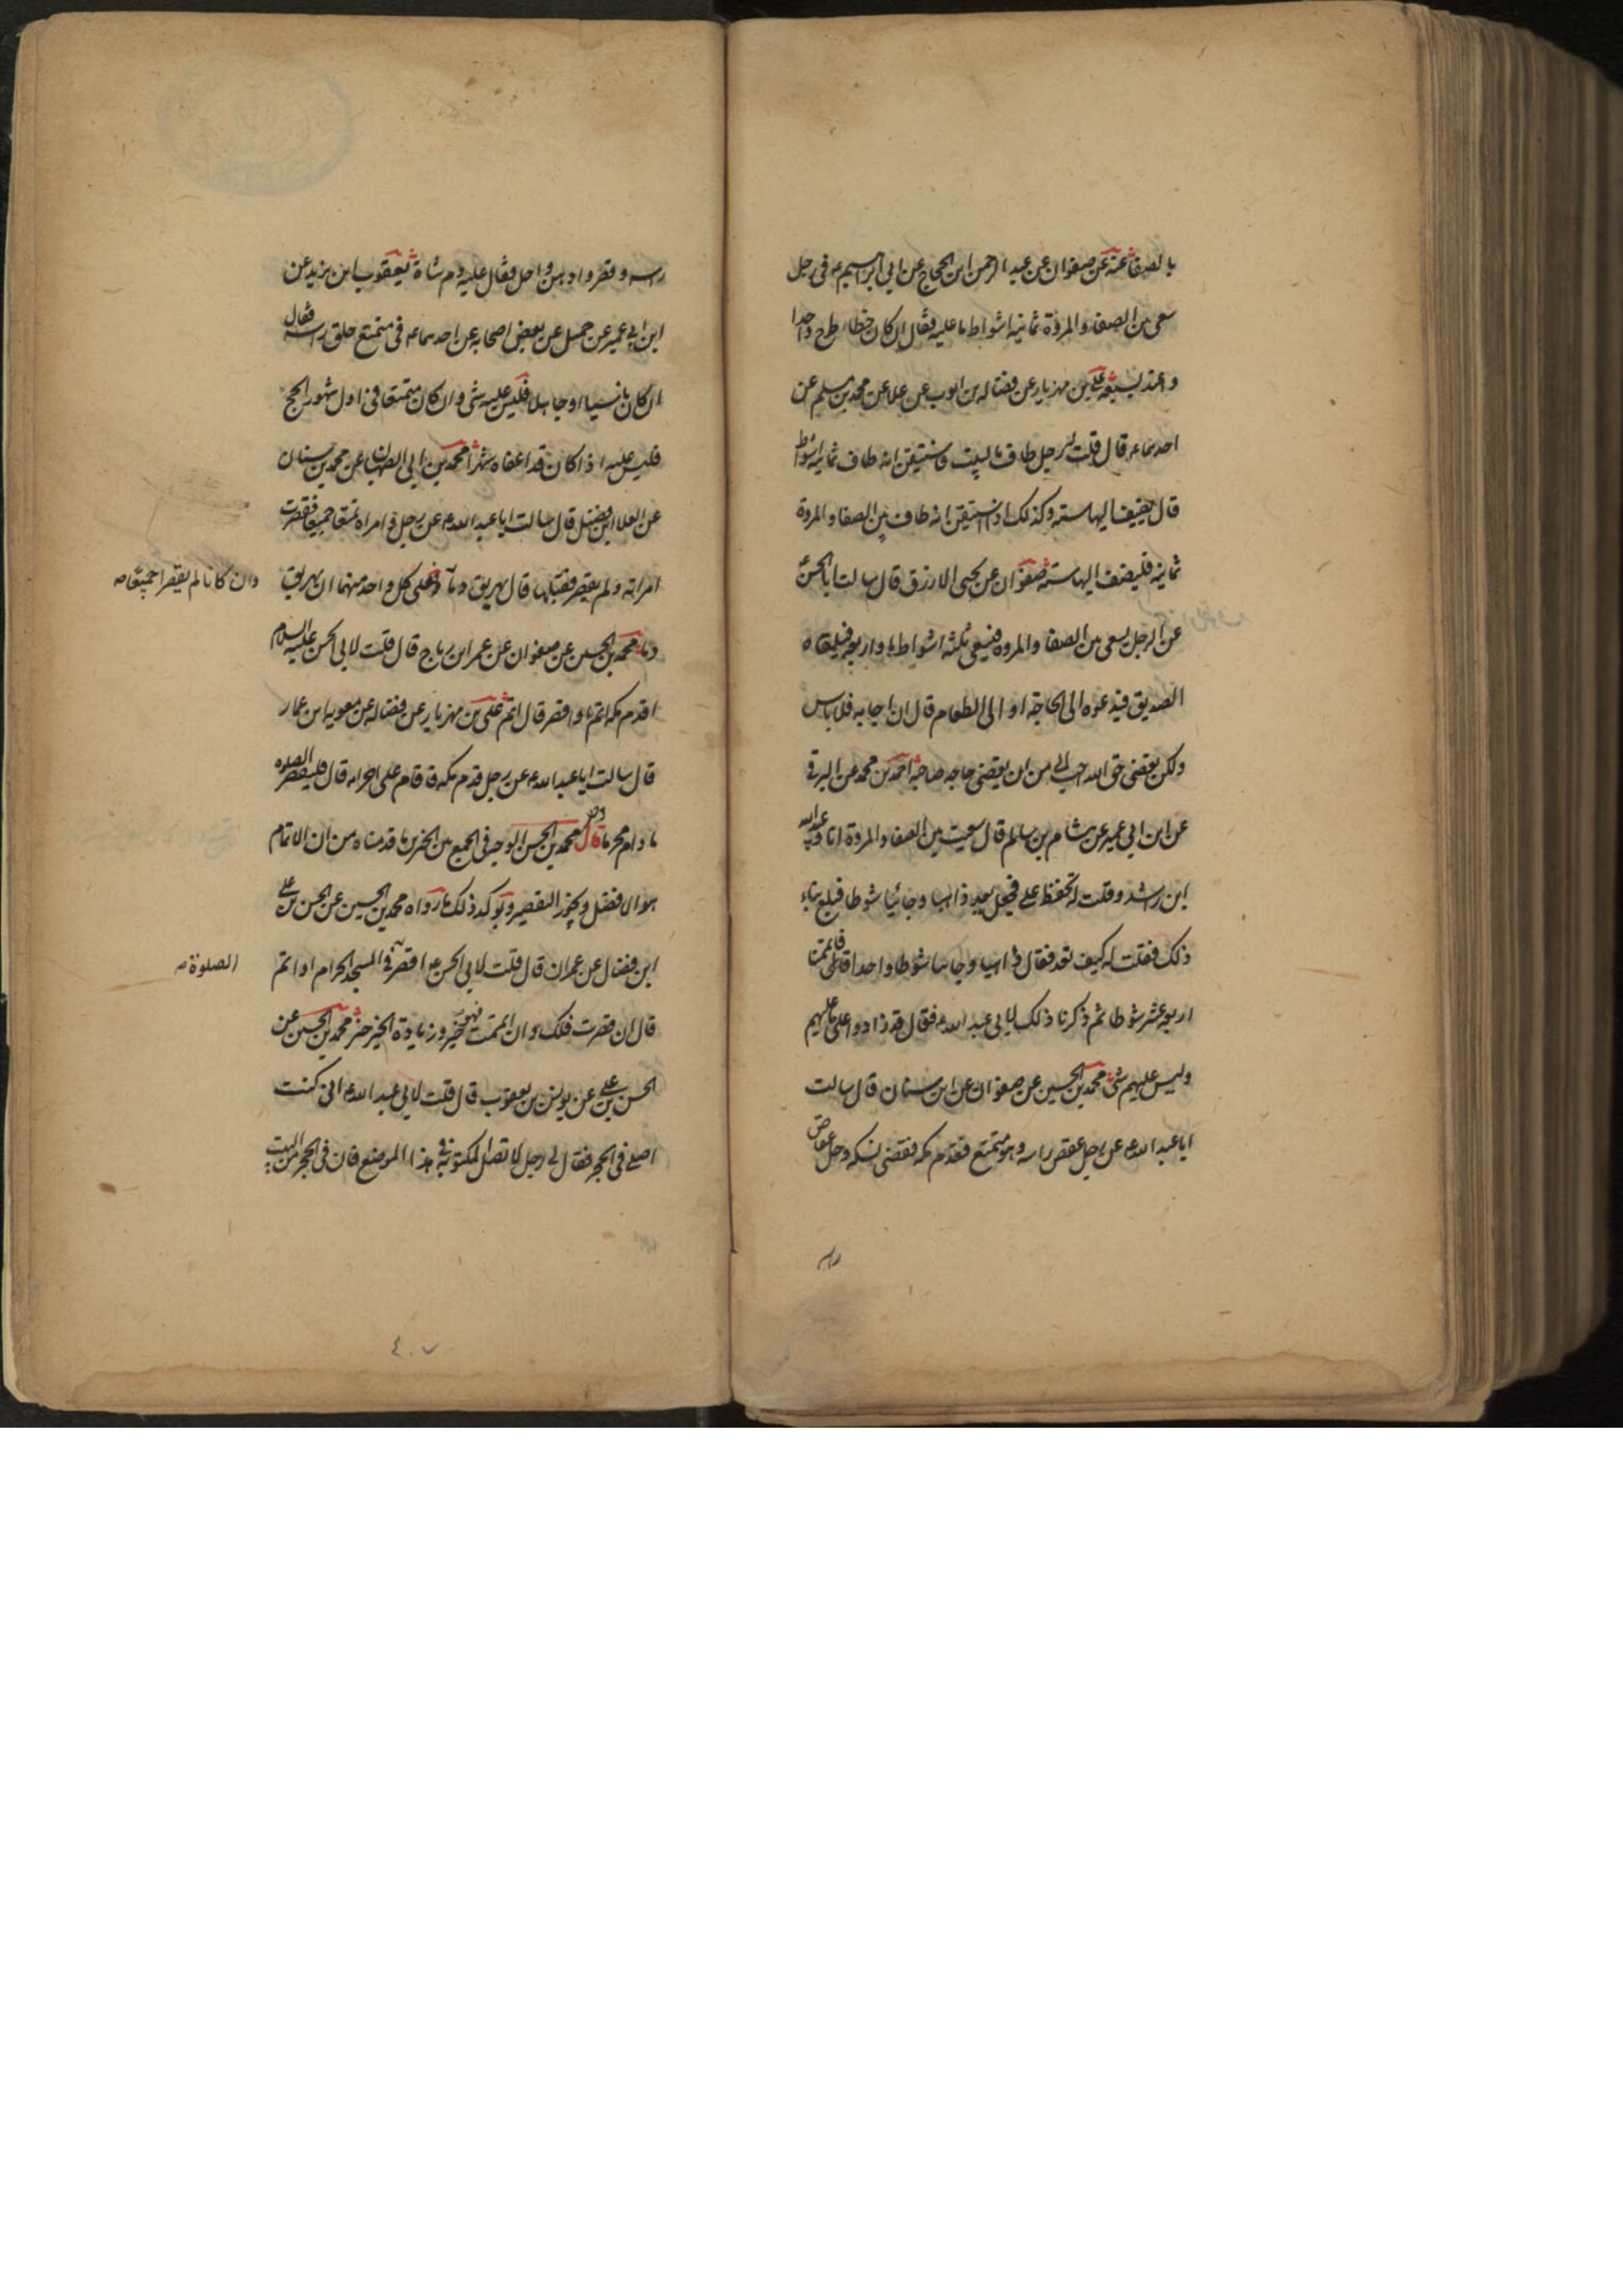 بالصفا عنه عن صفوان عن عبد الرحمن ابن الحجاج عن ابي ابرهيم ع في رجل
سعى بين الصفا والمروة ثمانية اشواط ما عليه فقال ان كان خطا طرح واحدا
واعتد بسبعة علي بن مهزيار عن فضاله بن ايوب عن علا عن محمد بن مسلم عن
احدهما ع قال قلت رجل طاف بالبيت فاستيقن انه طاف ثمانية اشواط
قال يضيف اليها ستة وكذلك اذا استيقن انه طاف بين الصفا والمروة
ثمانية فليضف اليها ستة صفوان عن يحيى الازرق قال سالت ابا الحسن ع
عن الرجل يسعى بين الصفا والمروة فيسعى ثلثة اشواط او اربعة فيلقاه
الصديق فيدعوه الى الحاجة او الى الطعام قال ان اجابه فلا باس
ولكن يقضي حق الله احب الي من ان يقضي حاجه صاحبه احمد بن محمد عن البرقي
عن ابن ابي عمير عن هشام بن سالم قال سعيت بين الصفا والمروة انا وعبيد الله
ابن راشد وقلت له تحفظ علي فجعل يعد ذاهبا وجائيا شوطا فبلغ بنا
ذلك فقلت له كيف تعد فقال ذاهبا وجائيا شوطا واحدا فاتممنا
اربعة عشر شوطا ثم ذكرنا ذلك لابي عبد الله ع فقال قد زادوا على ما عليهم
وليس عليهم شئ محمد بن الحسين عن صفوان عن ابن سنان قال سالت
ابا عبد الله ع عن رجل عقص راسه وهو متمتع فقدم مكه فقضى نسكه وحل عقاص
راسه
راسه وقصر وادهن واحل فقال عليه دم شاة يعقوب ابن يزيد عن
ابن ابي عمير عن جميل عن بعض اصحابه عن احدهما ع في متمتع حلق راسه فقال
ان كان ناسيا او جاهلا فليس عليه شئ وان كان متمتعا في اول شهور الحج
فليس عليه اذا كان قد اعفاه شهرا محمد بن ابي الصهبان عن محمد بن سنان
عن العلا ابن فضيل قال سالت ابا عبد الله ع عن رجل وامراه تمتعا جميعا فقصرت
امراته ولم يقصر فقبلها قال يهريق دما فعلى كل واحد منهما ان يهريق
وان كانا لم يقصرا جميعا
دما محمد بن الحسين عن صفوان عن عمر ابن رباح قال قلت لابي الحسن عليه السلام
اقدم مكه اتم او اقصر قال اتم علي بن مهزيار عن فضاله عن معويه ابن عمار
قال سالت ابا عبد الله ع عن رجل قدم مكه فاقام على احرامه قال فليقصر الصلوه
ما دام محرما قال محمد بن الحسن الوجه في الجمع بين الخبرين ما قدمناه من ان الاتمام
هو الافضل ويجوز التقصير ويوكد ذلك ما رواه محمد بن الحسين عن الحسن بن علي
ابن فضال عن عمران قال قلت لابي الحسن ع اقصر في المسجد الحرام او اتم
الصلوة
قال ان قصرت فلك وان اتممت فهو خير وزيادة الخير خير محمد بن الحسين عن
الحسن بن علي عن يونس بن يعقوب قال قلت لابي عبد الله ع اني كنت
اصلي في الحجر فقال لي رجل لا تصل المكتوبة في هذا الموضع فان في الحجر من البيت
٤٠٧